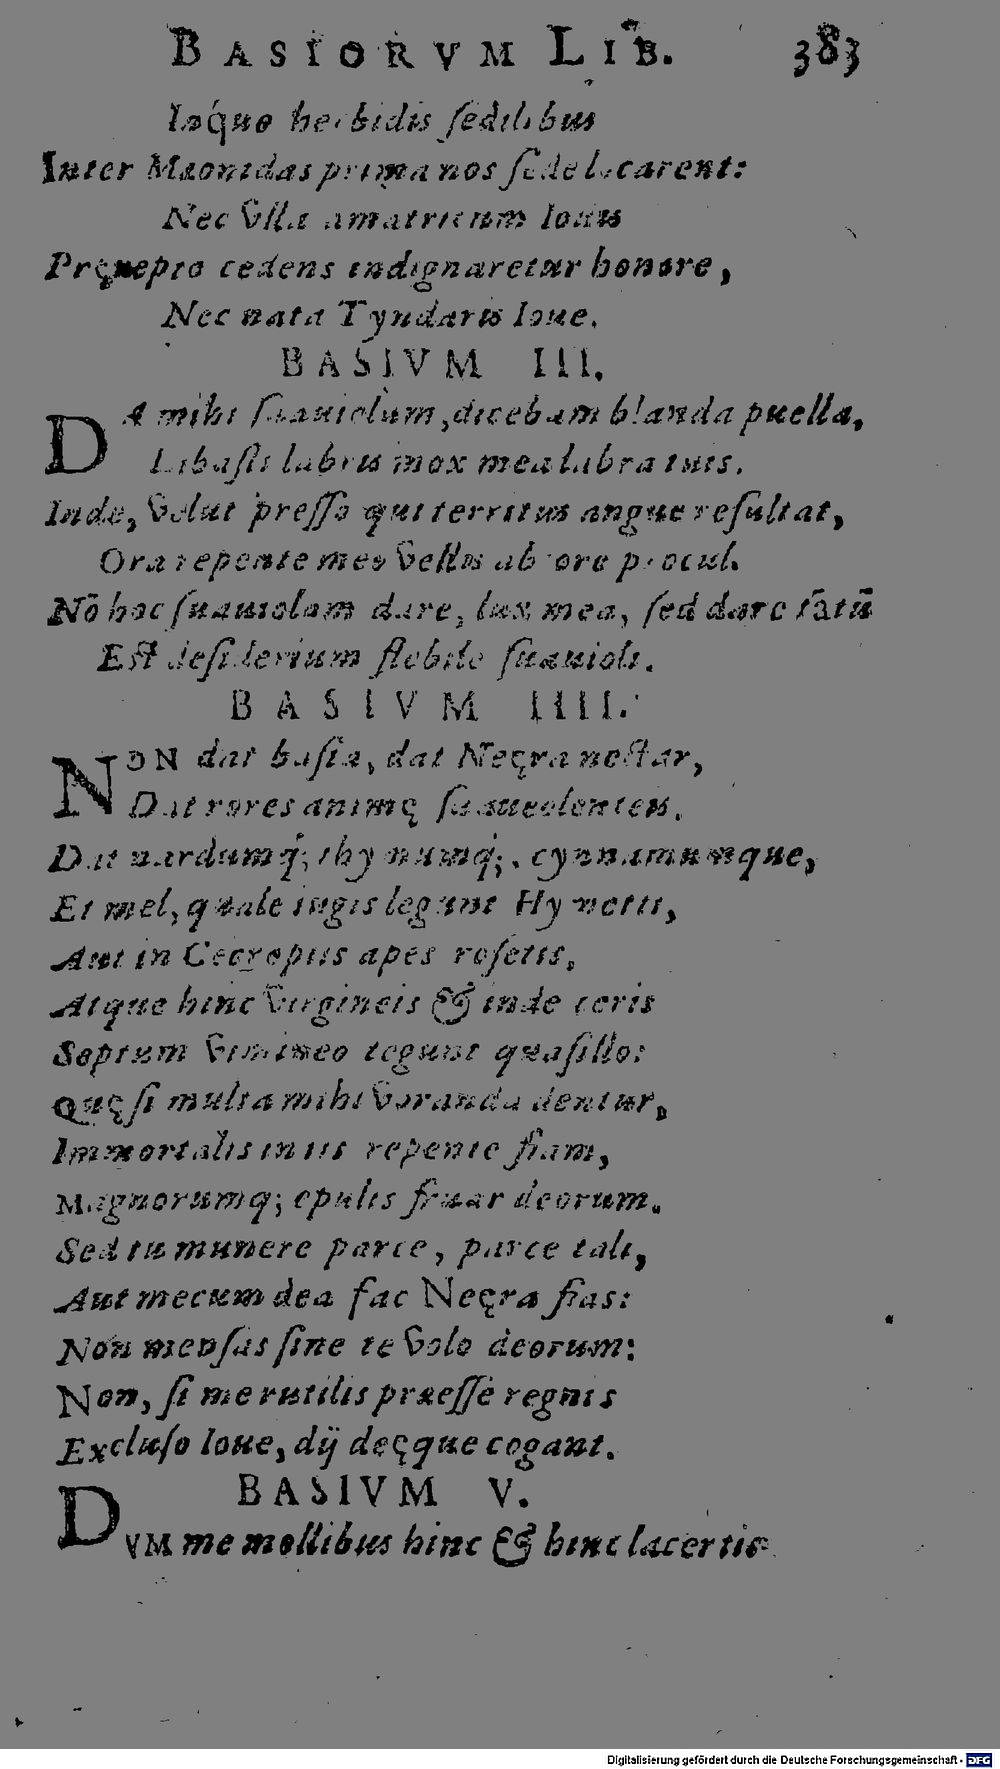 BASIORVM LIB. 383
Inq́ue herbidis ſedilibus
Inter Mæonidas prima nos ſede locarent:
Nec vlla amatricum Iouis
Pręrepto cedens indignaretur honore,
Nec nata Tyndaris Ioue.
BASIVM III.
DA mihi ſuauiolum, dicebam blanda puella,
Libaſti labris mox mea labra tuis.
Inde, velut preſſo qui territus angue reſultat,
Ora repente meo vellis ab ore procul.
Nō hoc ſuauiolum dare, lux mea, ſed dare tātū
Eſt deſiderium flebile ſuauioli.
BASIVM IIII.
NON dat baſia, dat Neęra nectar,
Dat rores animę ſuaueolenteis.
Dat nardumq́; thymumq́;, cynnamumque,
Et mel, quale iugis legunt Hymetti,
Aut in Cecropiis apes roſetis,
Atque hinc virgineis & inde ceris
Septum vimineo tegunt quaſillo:
Quę ſi multa mihi voranda dentur,
Immortalis in iis repente fiam,
Magnorumq; epulis fruar deorum.
Sed tu munere parce, parce tali,
Aut mecum dea fac Neęra fias:
Non menſas ſine te volo deorum:
Non, ſi me rutilis præeſſe regnis
Excluſo Ioue, dij deęque cogant.
BASIVM V.
DVM me mollibus hinc & hinc lacertis
Digitalisierung gefördert durch die Deutsche Forschungsgemeinschaft - DFG